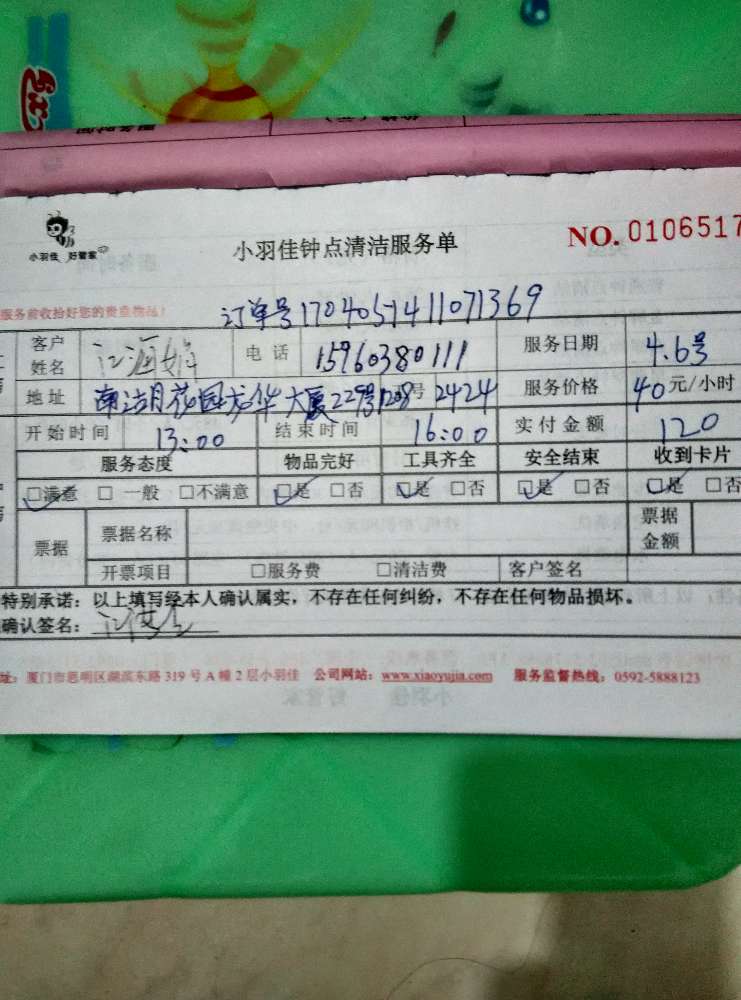 小羽佳 好管家
小羽佳钟点清洁服务单
NO. 0106517
服务前收拾好您的贵重物品！
订单号1704051411071369
客户姓名 电话 15960380111 服务日期 4.6号
地址 南湖花园龙华大厦229号1208 号 2424 服务价格 40元/小时
开始时间 13:00 结束时间 16:00 实付金额 120
服务态度 物品完好 工具齐全 安全结束 收到卡片
□满意 □一般 □不满意 □是 □否 □是 □否 □是 □否 □是 □否
票据 票据名称 票据金额
开票项目 □服务费 □清洁费 客户签名
特别承诺：以上填写经本人确认属实，不存在任何纠纷，不存在任何物品损坏。
确认签名：
址：厦门市思明区湖滨东路 319 号 A 幢 2 层小羽佳 公司网站：www.xiaoyujia.com 服务监督热线：0592-5888123